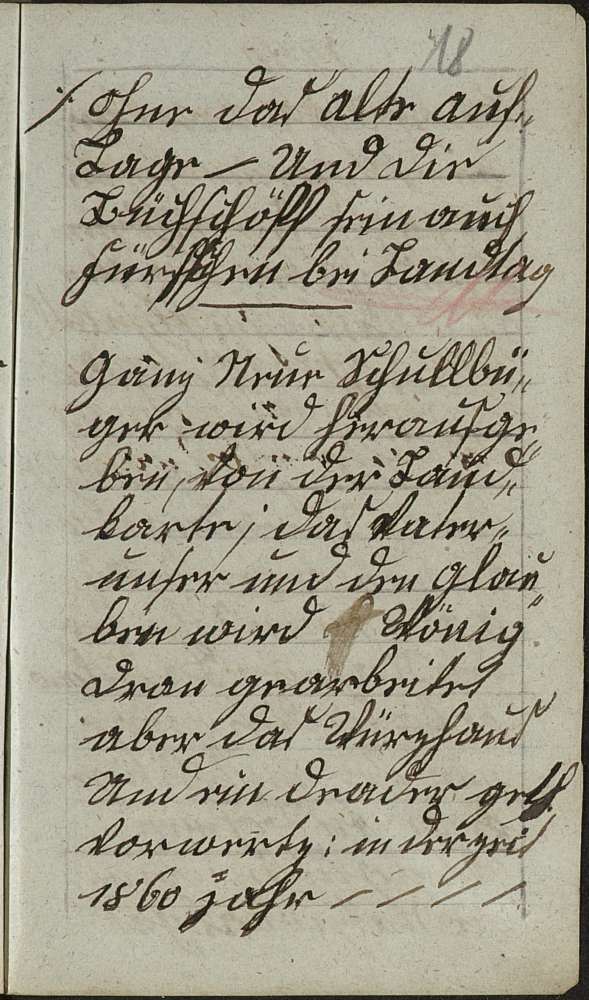 18
Ohne das alte auf„
Lage – Und die
Büchschöff sein auch
bei Landtag
Ganz Neue Schullbü„
ger wird herausge„
ben, von der Land„
karte; das Vater„
unser und den Glau„
ben wird Wönig
dran gearbeitet
aber das Würzhaus
Und ein deader geth
vorwertz: in der zeit
1860 Jahr – – – –